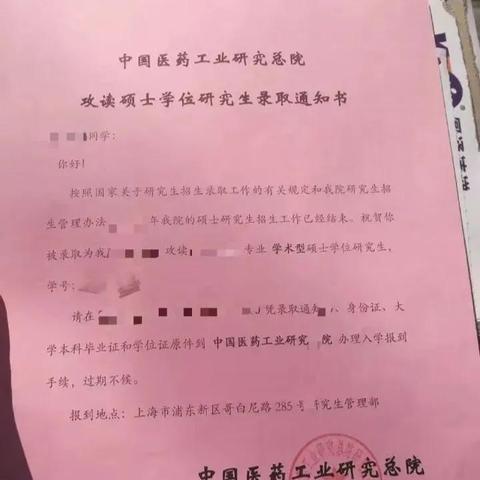 中国医药工业研究总院
攻读硕士学位研究生录取通知书
同学:
你好!
按照国家关于研究生招生录取工作的有关规定和我院研究生招
生管理办法 年我院的硕士研究生招生工作已经结束。祝贺你
被录取为我 攻读 专业 学术型硕士学位研究生,
学号:
请在 凭录取通知 、身份证、大
学本科毕业证和学位证原件到 中国医药工业研究 院 办理入学报到
手续,过期不候。
报到地点:上海市浦东新区哥白尼路 285 号 研究生管理部
中国医药工业研究总院